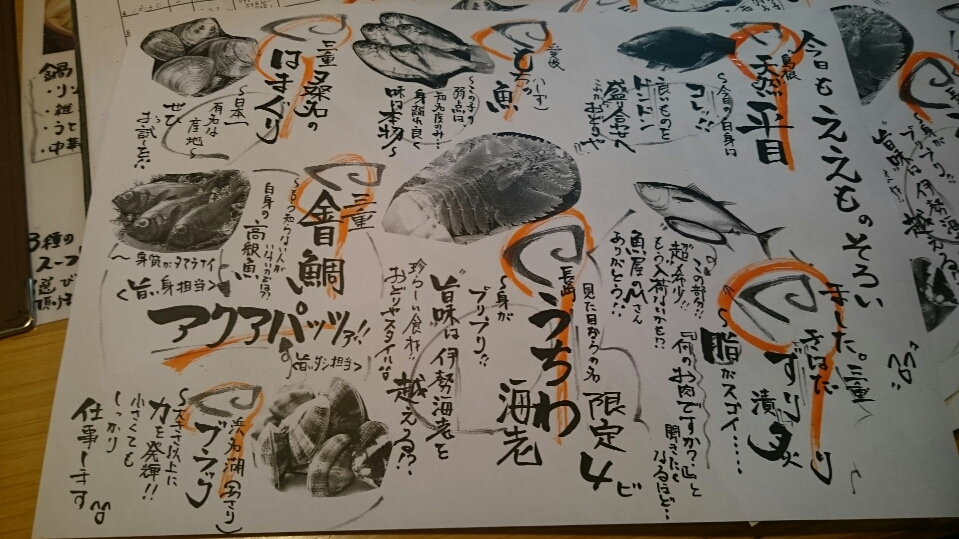 今日もええものそろい
ました。
島根
天然
平目
〜今日の白身は
コレ!!
良いものを
ドドーンと
盛り合わせへ
愛媛
もちの魚
〜この子の
弱点は、
知名度のみ!!
身離れ良く
味は本物〜
三重
桑名の
はまぐり
〜日本一
有名な
産地〜
ぜひ
お試しを!!
三重
きはだ
ずり
漬
炙り
〜脂がスゴイ‥‥
『何のお肉ですか?』と
聞きたく
なるほど‥
〜この部分!!
超希少!!
もう入荷ないかも!?
魚屋のMさん
ありがとう!!
長崎
うちわ
海老
見た目からの名
限定
4ビ
〜身が
プリプリ!!
旨味は伊勢海老を
越える!?
珍しい食わ!!
おどりやスタイル
三重
金目鯛
〜もう知らない人が
いないのでは!?
白身の高級魚
〜身質がタマラナイ
<旨い身担当>
アクアパッツァ!!
<旨いダシ担当>
浜名湖(アサリ)
アサリ
〜大きさ以上に
力を発揮!!
小さくても
しっかり
仕事します
鍋
・リゾ
・雑
・うど
・中華
3種の
スープ
選び
頂け
〜身がプリプリ!!
旨味は伊勢海老